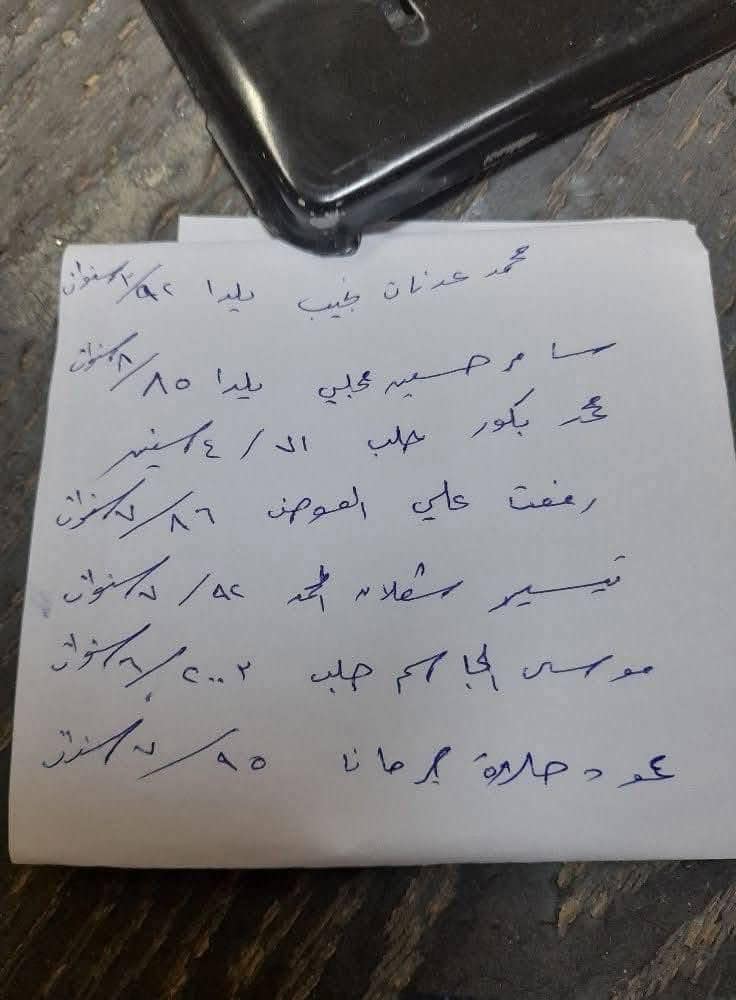 محمد عدنان نجيب يلدا ٩٢/ ٣ سنوات
سامر حسين محلي يلدا ٨٥/ ٨ سنوات
محمد بكور حلب ٨١/ ٤ سنين
رفعت علي العوض ٨٦/ ٧ سنوات
تيسير شعلان المحمد ٩٢/ ٧ سنوات
موسى الجاسم حلب ٢٠٠٣/ ٦ سنوات
حلاوة جرمانا ٩٥/ ٧ سنوات